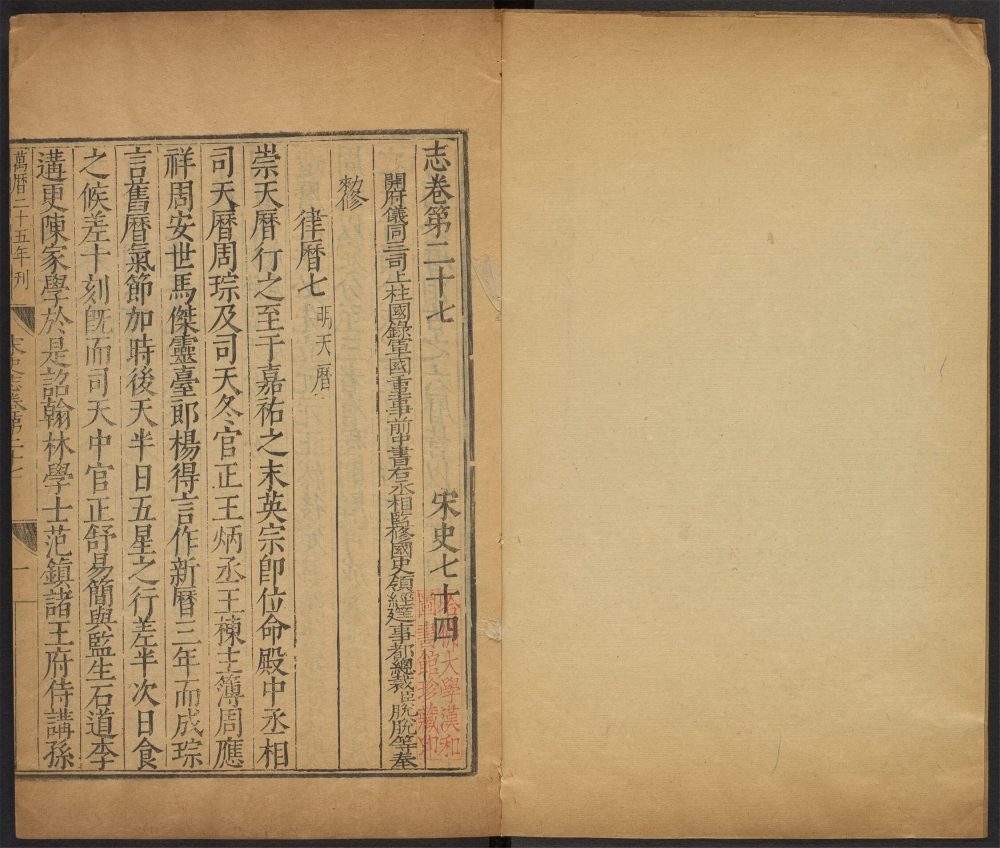 志卷第二十七 宋史七十四
開府儀同三司上柱國錄軍國重事前中書右丞相監修國史領經筵事都總裁臣脫脫等奉
勑修
律曆七 明天曆
崇天曆行之至于嘉祐之末英宗卽位命殿中丞相
司天曆周琮及司天冬官正王炳丞王棟主簿周應
祥周安世馬傑靈臺郎楊得言作新曆三年而成琮
言舊曆氣節加時後天半日五星之行差半次日食
之候差十刻旣而司天中官正舒易簡與監生石道李
遘更陳家學於是詔翰林學士范鎮諸王府侍講孫
萬曆二十五年刊
宋史志卷第二十七
一
哈佛大學漢和
圖書館珍藏印